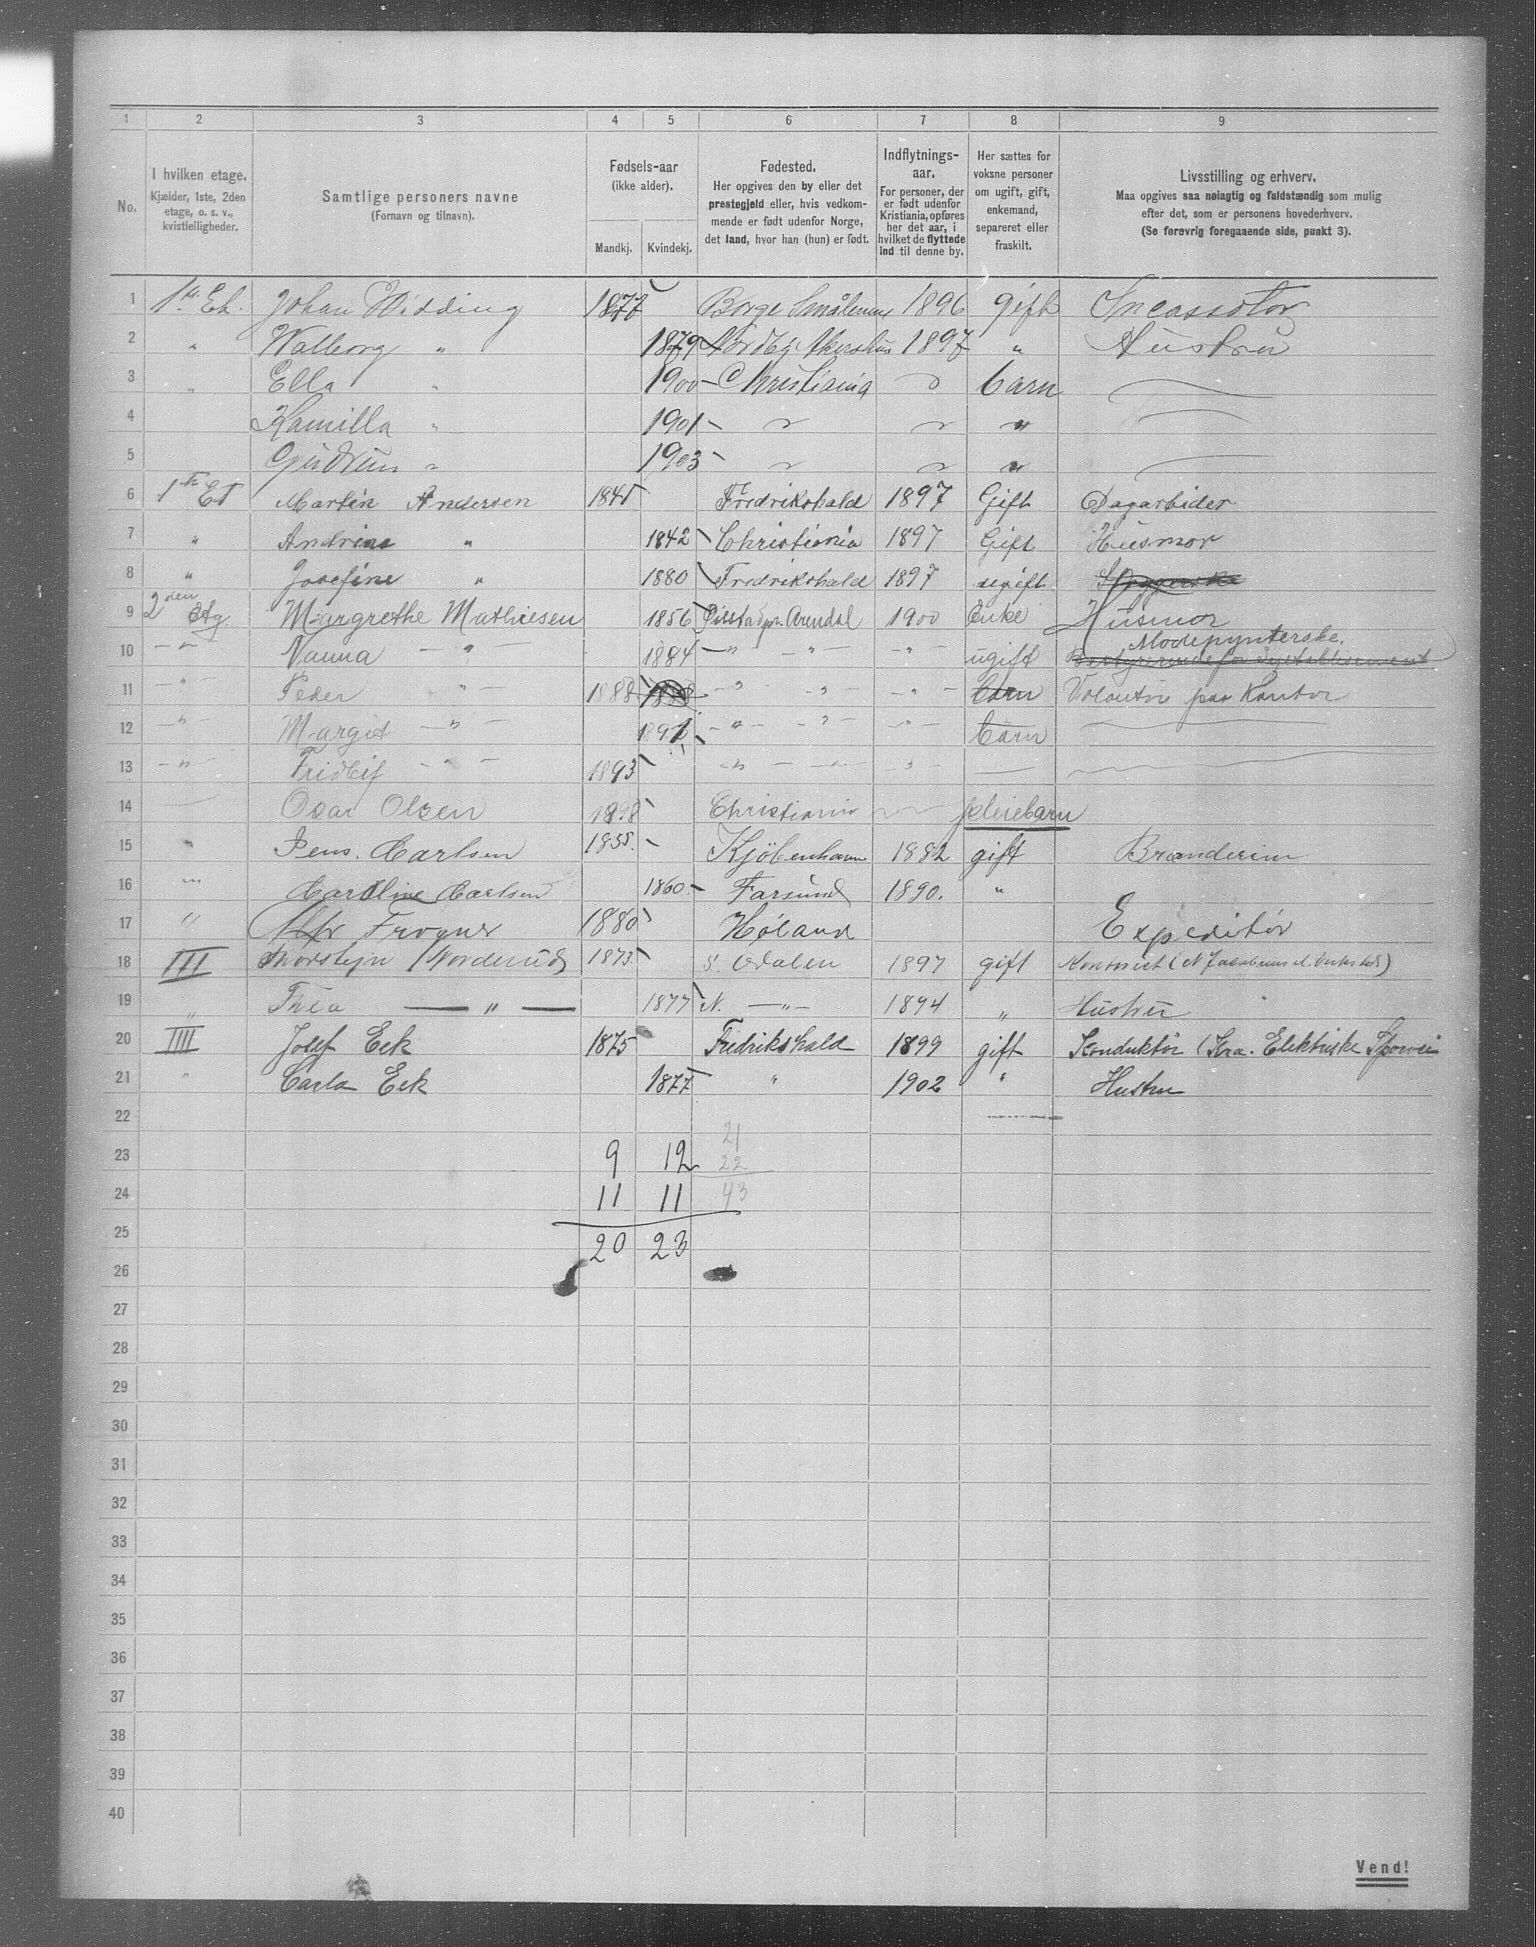 1 2 3 4 5 6 7 8 9
No. I hvilken etage. Kjælder, 1ste, 2den etage, o. s. v., kvistleiligheder. Samtlige personers navne (Fornavn og tilnavn). Fødsels-aar (ikke alder). Mandkj. Kvindekj. Fødested. Her opgives den by eller det prestegjeld eller, hvis vedkommende er født udenfor Norge, det land, hvor han (hun) er født. Indflytnings-aar. For personer, der er født udenfor Kristiania, opføres her det aar, i hvilket de flyttede ind til denne by. Her sættes for voksne personer om ugift, gift, enkemand, separeret eller fraskilt. Livsstilling og erhverv. Maa opgives saa nøiagtig og fuldstændig som mulig efter det, som er personens hovederhverv. (Se forøvrig foregaaende side, punkt 3).
1 1ste Et. Johan Widding 1877 Borge Smålenene 1896 gift Incassotør
2 " Walborg " 1879 Nordby Akershus 1897 " Hustru
3 " Ella " 1900 Christiania " barn
4 Kamilla " 1901 " " "
5 Gudrun " 1903 " " "
6 1ste Et Martin Andersen 1841 Fredrikshald 1897 Gift Dagarbider
7 " Andrine " 1842 Christiania 1897 Gift Husmor
8 " Josefine " 1880 Fredrikshald 1897 ugift
9 2den Etg. Margrethe Mathiesen 1856 Øiestad pr. Arendal 1900 Enke Husmor
10 " Nanna " 1884 " " " ugift Modepynterske. Bestyrerinde for Syetablisement
11 " Peder " 1888 1888 " " " barn Volontør paa Kontor
12 " Margit " 1891 " " " barn
13 " Fridleif " 1893 " " "
14 Oscar Olsen 1898 Christiania pleiebarn
15 " Jens. Carlsen 1855. Kjøbenhavn 1882 gift
16 " Caroline Carlsen 1860. Farsund 1890. "
17 " Alfr Frogner 1880 Høland Expeditør
18 III Thorstejn Norderud 1873 S. Odalen 1897 gift
19 " Thea " 1877 N. " 1894 " Hustru
20 IIII Josef Eek 1875 Fredrikshald 1899 gift Konduktør (Kra. Elektriske Sporvei
21 " Carla Eek 1877 " 1902 " Hustru
22 21
23 9 12 22
24 11 11 43
25 20 23
26
27
28
29
30
31
32
33
34
35
36
37
38
39
40
Vend!